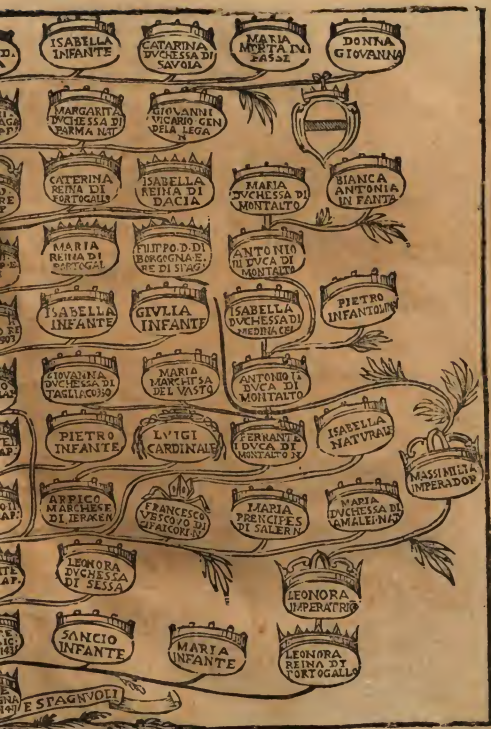 ISABELLA
INFANTE
CATARINA
DVCHESSA DI
SAVOIA
MARIA
MORTA IN
FASSE
DONNA
GIOVANNA
MARGARITA
DVCHESSA DI
PARMA NAT
GIOVANNI
VICARIO GEN
DELA LEGA
N
CATERINA
REINA DI
PORTOGALLO
ISABELLA
REINA DI
DACIA
MARIA
DVCHESSA DI
MONTALTO
BIANCA
ANTONIA
INFANTA
MARIA
REINA DI
PORTOGAL
FILIPPO. D. DI
BORGOGNA. E.
RE DI SPAG
ANTONIO
III DVCA DI
MONTALTO
ISABELLA
INFANTE
GIVLIA
INFANTE
ISABELLA
DVCHESSA DI
MEDINA CEL
PIETRO
GIOVANNA
DVCHESSA DI
TAGLIACOZO
MARIA
MARCHESA
DEL VASTO
ANTONIO II
DVCA DI
MONTALTO
PIETRO
INFANTE
LVIGI
CARDINALE
FERNANTE
I DVCA DI
MONTALTO N
ISABELLA
NATVRALE
MASSIMILIA
IMPERADOR
ARRICO
MARCHESE
DI
FRANCESCO
VESCOVO DI
MARIA
PRENCIPES
DI SALERN
MARIA
DVCHESSA DI
AMALFI. NAT
LEONORA
DVCHESSA
DI SESSA
LEONORA
IMPERATRIC
SANCIO
INFANTE
MARIA
INFANTE
LEONORA
REINA DI
PORTOGALLO
E SPAGNVOLI